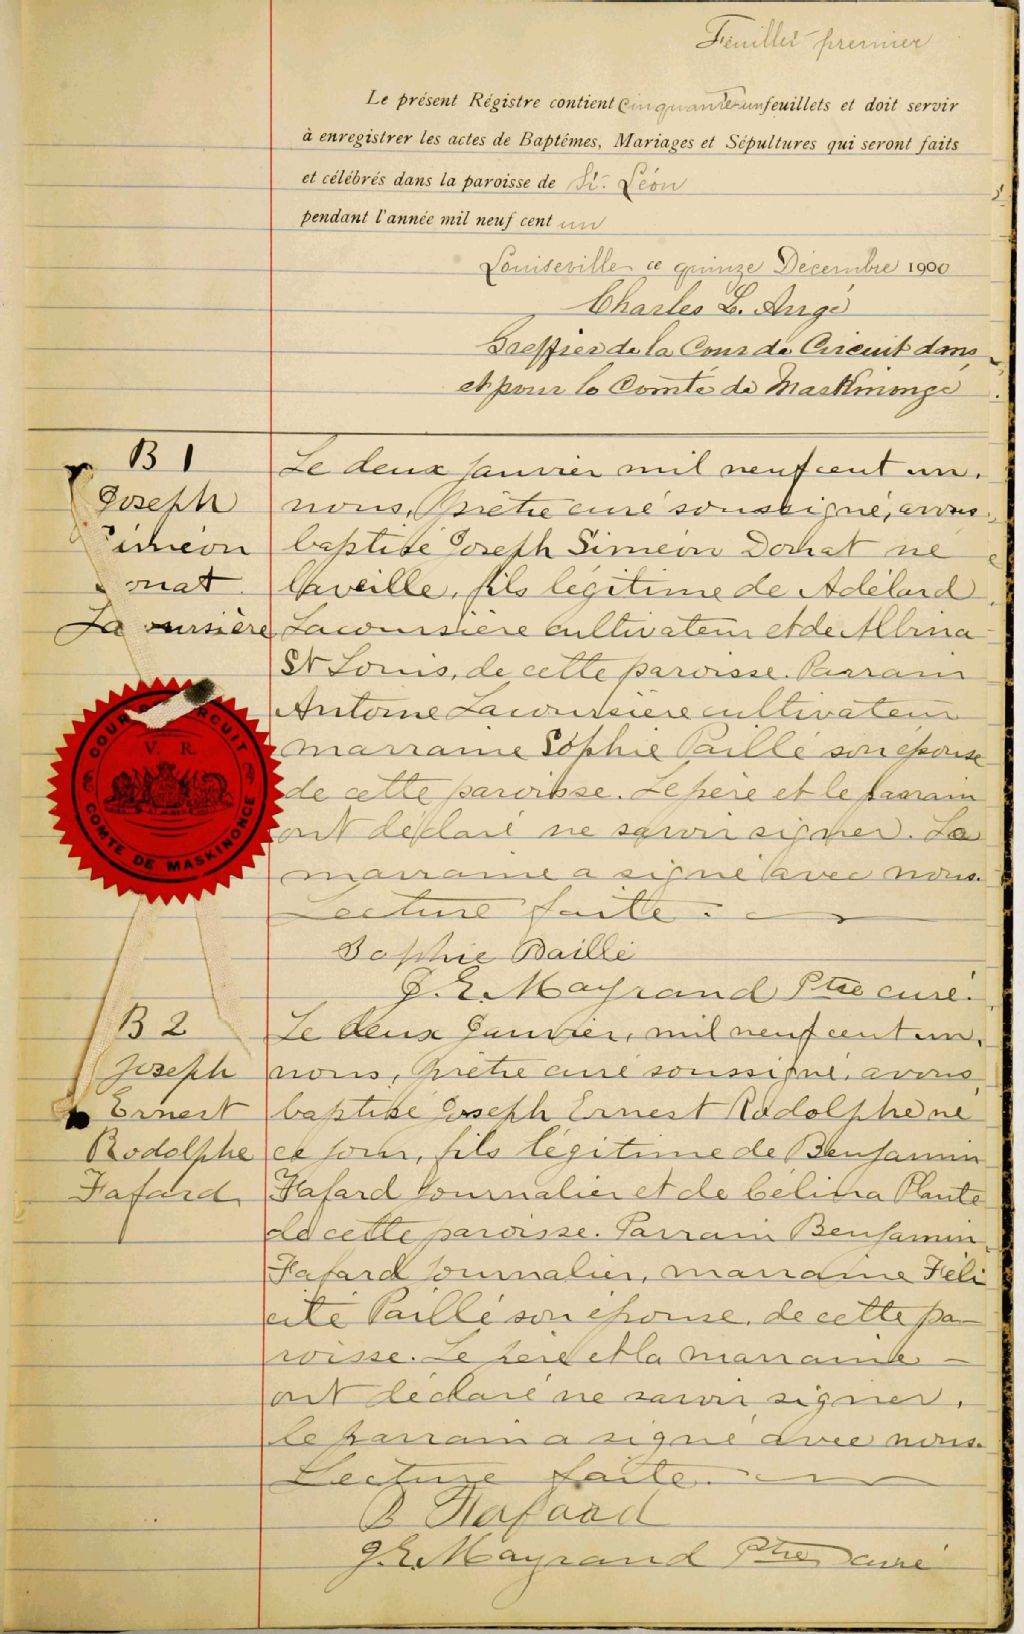 Feuillet premier
Le présent Régistre contient cinquante-un feuillets et doit servir
à enregistrer les actes de Baptêmes, Mariages et Sépultures qui seront faits
et célébrés dans la paroisse de St. Léon
pendant l'année mil neuf cent un
Louiseville ce quinze Décembre 1900
Charles L. Augé
Greffier de la Cour de Circuit dans
et pour le Comté de Maskinongé
B 1
Joseph
Siméon
Donat
Lacoursière
Le deux janvier mil neuf cent un,
nous, prêtre curé soussigné, avons
baptisé Joseph Siméon Donat né
la veille, fils légitime de Adélard
Lacoursière cultivateur et de Albina
St Louis, de cette paroisse. Parrain
Antoine Lacoursière cultivateur
marraine Sophie Paillé son épouse
de cette paroisse. Le père et le parrain
ont déclaré ne savoir signer. La
marraine a signé avec nous.
Lecture faite.
Sophie Paillé
J. E. Mayrand Ptre curé.
COUR DE CIRCUIT
V. R.
COMTÉ DE MASKINONGÉ
B 2
Joseph
Ernest
Rodolphe
Fafard
Le deux Janvier, mil neuf cent un,
nous, prêtre curé soussigné, avons
baptisé Joseph Ernest Rodolphe né
ce jour, fils légitime de Benjamin
Fafard journalier et de Célina Plante
de cette paroisse. Parrain Benjamin
Fafard journalier, marraine Féli
cité Paillé son épouse, de cette pa-
roisse. Le père et la marraine -
ont déclaré ne savoir signer,
le parrain a signé avec nous.
Lecture faite.
B Fafard
J. E. Mayrand Ptre curé